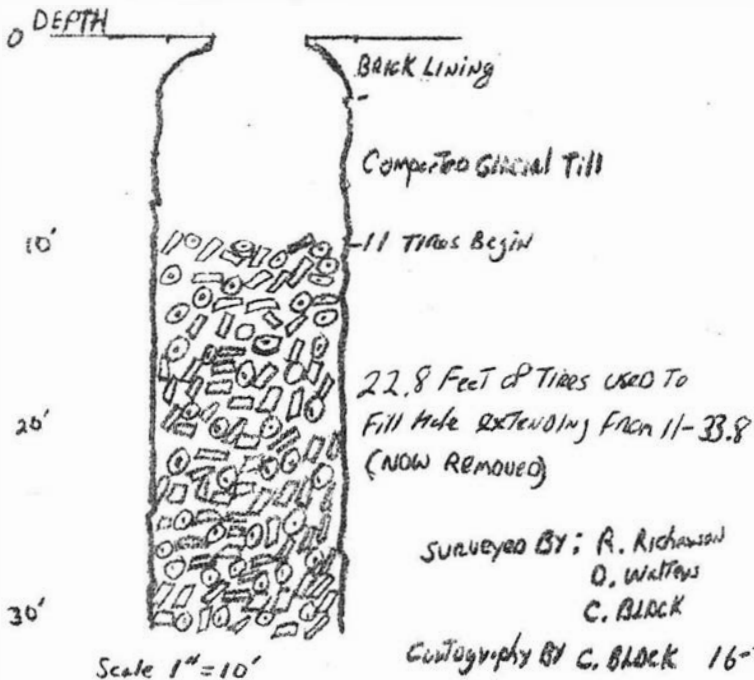 0 DEPTH
BRICK LINING
Compacted Glacial Till
10'
11 Tires Begin
22.8 Feet of Tires used To
20'
Fill Hole extending From 11-33.8
(NOW REMOVED)
Surveyed By: R. Richardson
D. Watters
C. BLACK
30'
Scale 1" = 10'
Cartography BY C. BLACK 16-